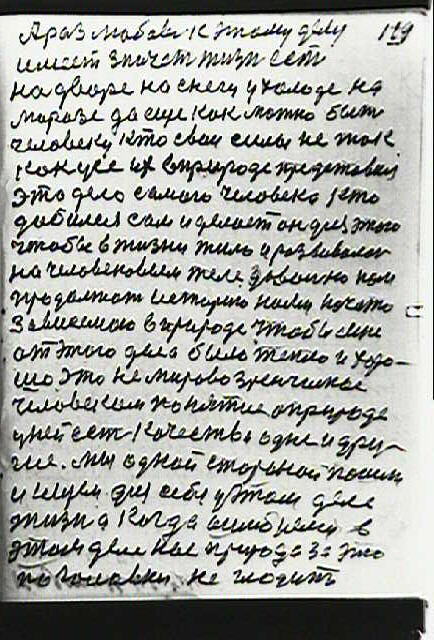 А раз любовь к этому делу 119
имеет значет жизн есть
на дворе на снегу у холоде на
морозе да еще как можно быть
человеку кто свои силы не так
как усе их в природе представил
это дело самого человека кто
добился сам и делает он для этого
чтобы в жизни жило и развивалос
на человековом теле
продолжат историю нами начато
зависемою в природе чтобы мне
от этого дела было тепло и хоро-
шо это не мировозренческое
человеческое понятие о природе
у ней есть качества одне и дру-
гие. мы одной стороной
и ищем для себя у этом деле
жизн а когда в
этом деле нас природа за это
по головки не глодить